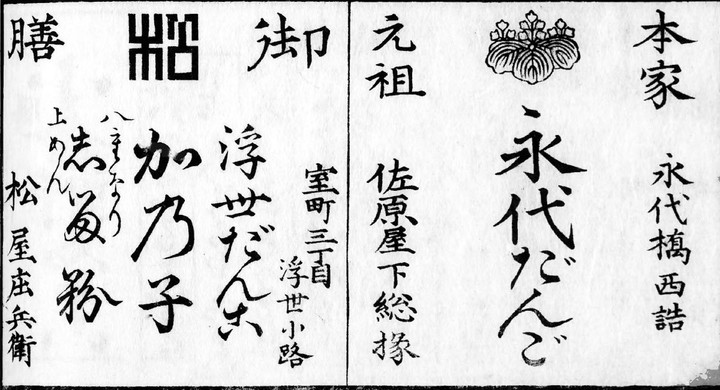 本家
永代橋西詰
永代だんご
元祖
佐原屋下総掾
御
松
膳
室町三丁目
浮世小路
浮世だんご
加乃子
八重なり
志る粉
上あん
松屋庄兵衛